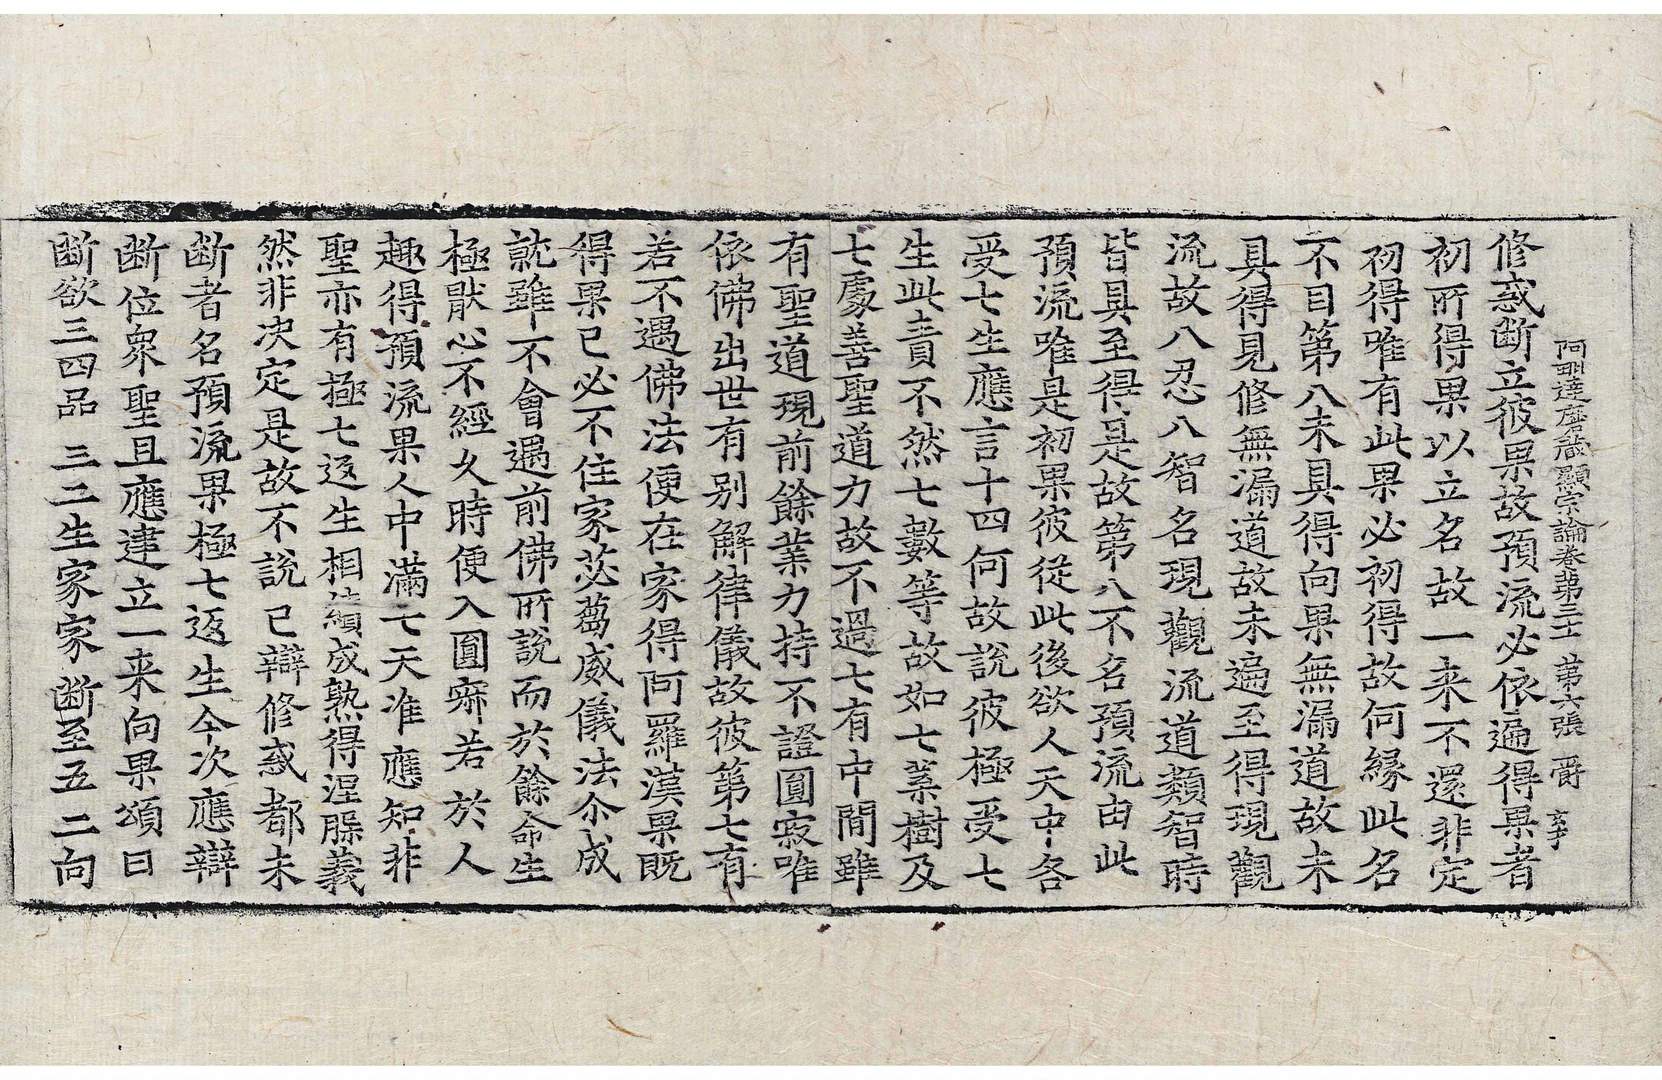 阿毗達磨藏顯宗論卷第三十 第六張 爵 玄宇
修惑斷立彼果故預流必依遍得果者
初所得果以立名故一来不還非定
初得唯有此果必初得故何緣此名
不目第八未具得向果無漏道故未
具得見修無漏道故未遍至得現觀
流故八忍八智名現觀流道類智時
皆具至得是故第八不名預流由此
預流唯是初果彼從此後欲人天中各
受七生應言十四何故說彼極受七
生此責不然七數等故如七葉樹及
七處善聖道力故不過七有中間雖
有聖道現前餘業力持不證圓寂唯
依佛出世有別解律儀故彼第七有
若不遇佛法便在家得阿羅漢果既
得果已必不住家苾蒭威儀法尒成
就雖不會遇前佛所說而於餘命生
極猒心不經久時便入圓寂若於人
趣得預流果人中滿七天准應知非
聖亦有極七返生相續成熟得涅槃義
然非决定是故不說 已辯修惑都未
斷者名預流果極七返生今次應辯
斷位衆聖且應建立一来向果頌曰
斷欲三四品 三二生家家 斷至五二向